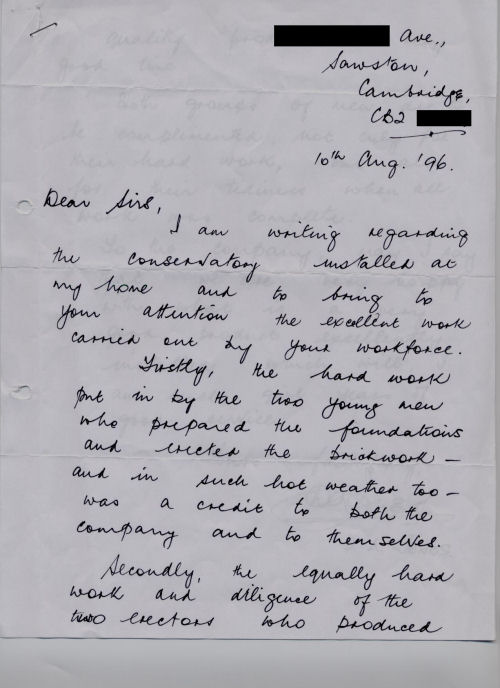 Ave.,
Sawston,
Cambridge,
CB2
10th Aug. '96.
Dear Sirs,
I am writing regarding
the conservatory installed at
my home and to bring to
your attention the excellent work
carried out by your workforce.
Firstly, the hard work
put in by the two young men
who prepared the foundations
and erected the brickwork –
and in such hot weather too –
was a credit to both the
company and to themselves.
Secondly, the equally hard
work and diligence of the
two erectors who produced